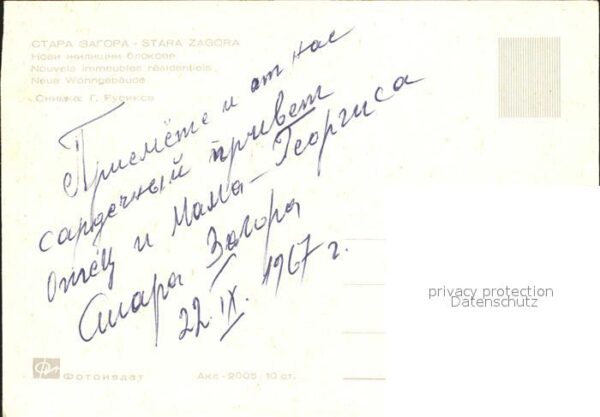 СТАРА ЗАГОРА - STARA ZAGORA
Нови жилищни блокове
Nouvels immeubles résidentiels
Neue Wohngebäude
Снимка: Г. Русинов
Приемёте и от нас
сардечный привет
Отец и Мама - Георгиса
Стара Загора
22. IX. 1967 г.
privacy protection
Datenschutz
Фотоиздат
Акл - 2005 : 10 ст.